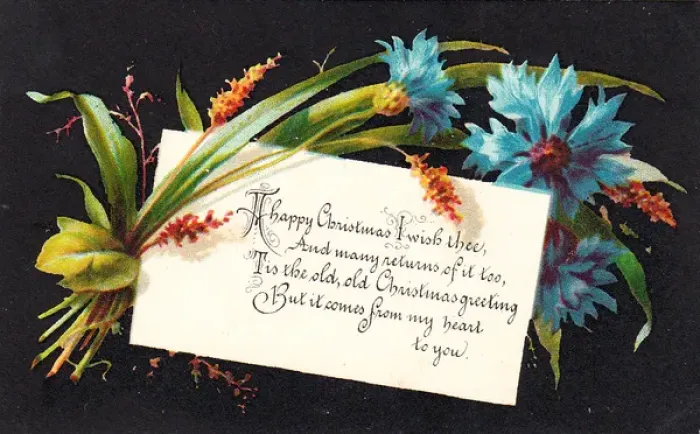 A happy Christmas I wish thee,
And many returns of it too,
Tis the old, old Christmas greeting
But it comes from my heart
to you.